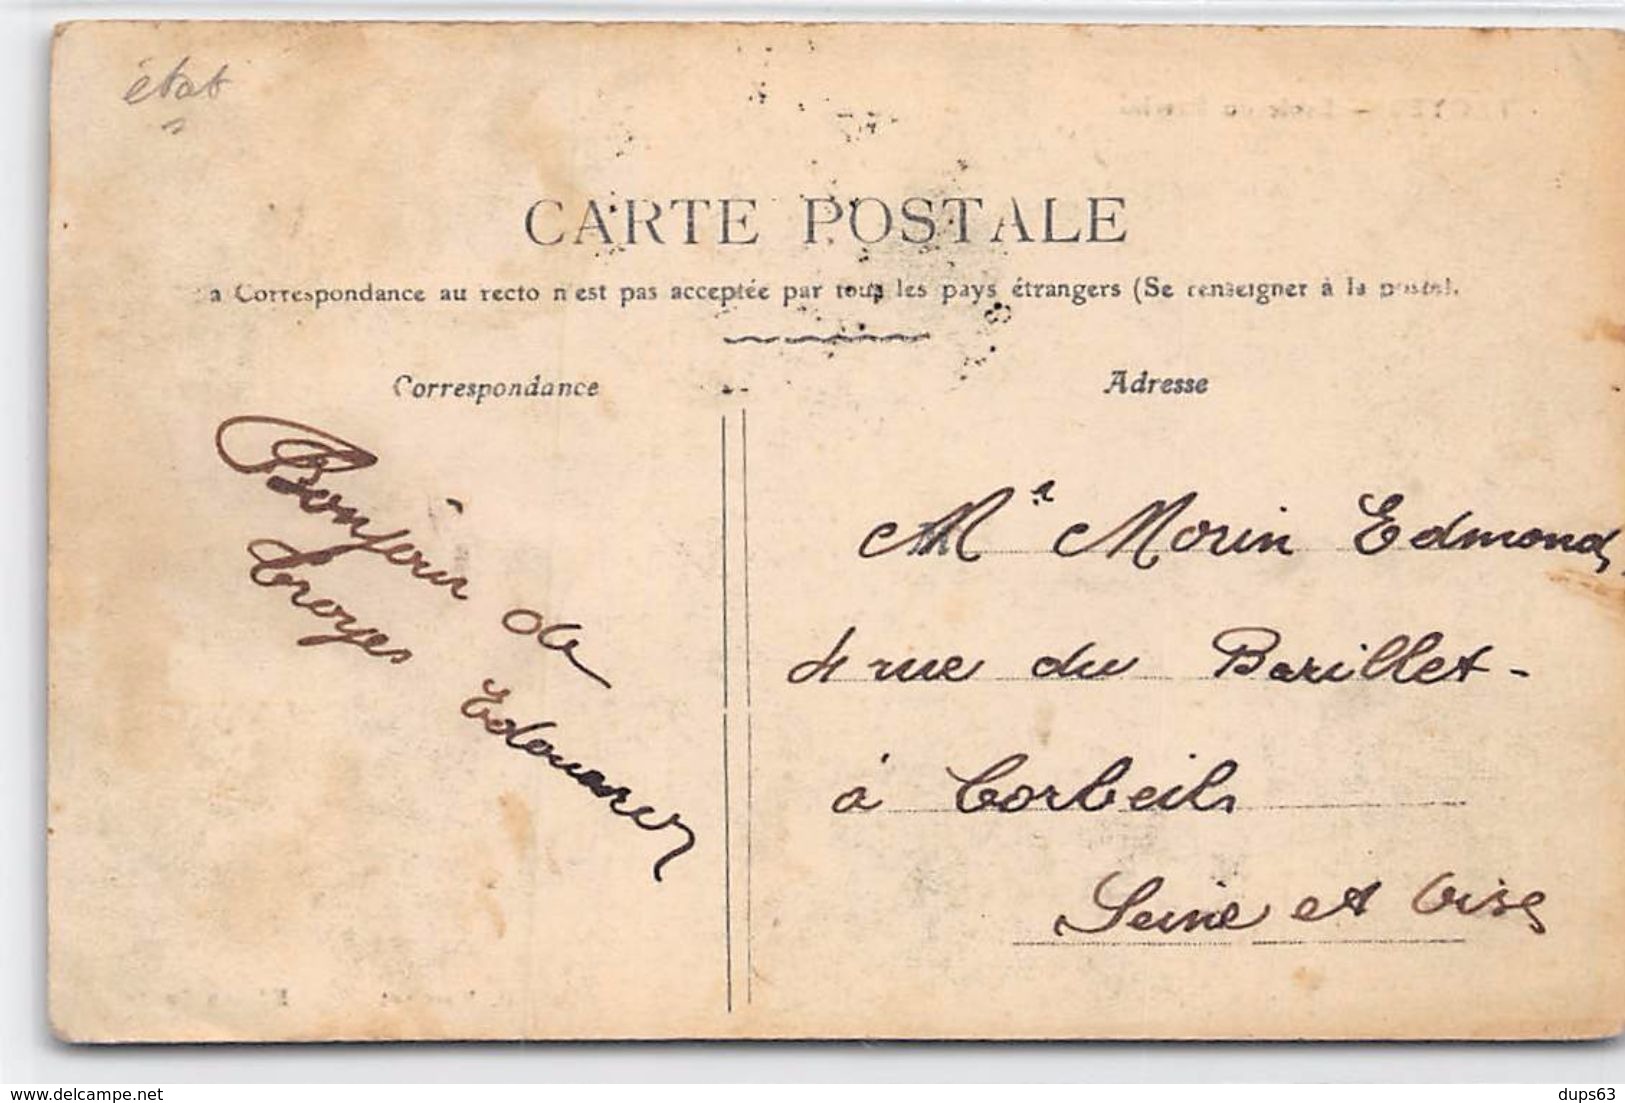 état
CARTE POSTALE
a Correspondance au recto n'est pas acceptée par tous les pays étrangers (Se renseigner à la poste).
Correspondance
Adresse
Bonjour de
Troyes
Edouard
Mr Morin Edmond
4 rue du Barillet -
à Corbeils
Seine et Oise
delcampe.net
dups63